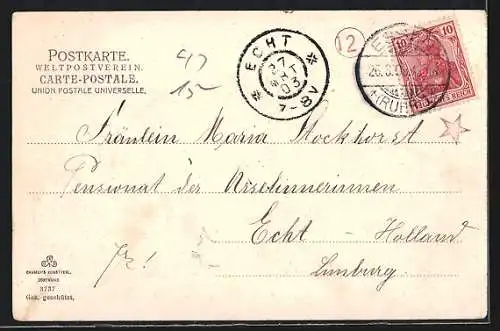 POSTKARTE.
WELTPOSTVEREIN.
CARTE-POSTALE.
UNION POSTALE UNIVERSELLE.
47
15
ECHT
27
03
7-8V
12
10
10
(RUHR)
REICH
Fräulein Maria Stockhorst
Pensionat der Urselinnerinnen
Echt - Holland
Limburg.
3737
Ges. geschützt.